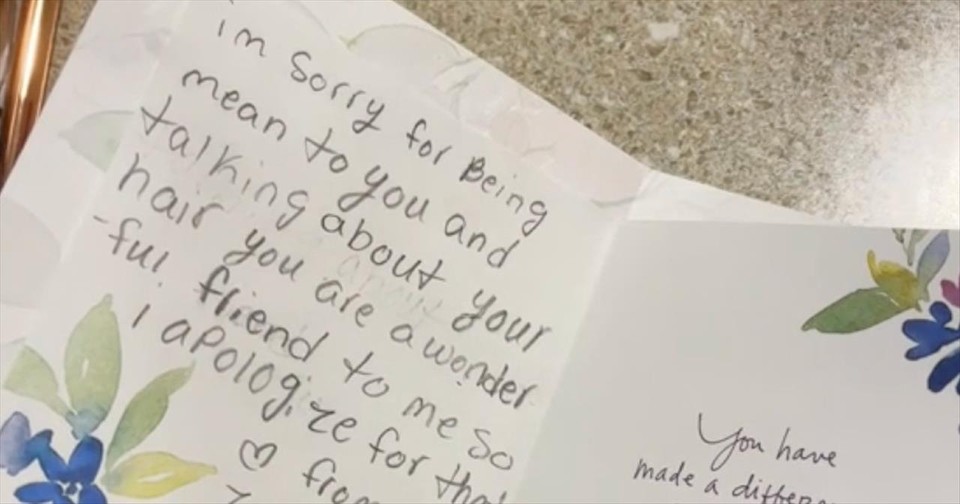 im Sorry for Being
mean to you and
talking about your
hair you are a wonder
-ful friend to me so
I apologize for that
♡ from
You have
made a differen